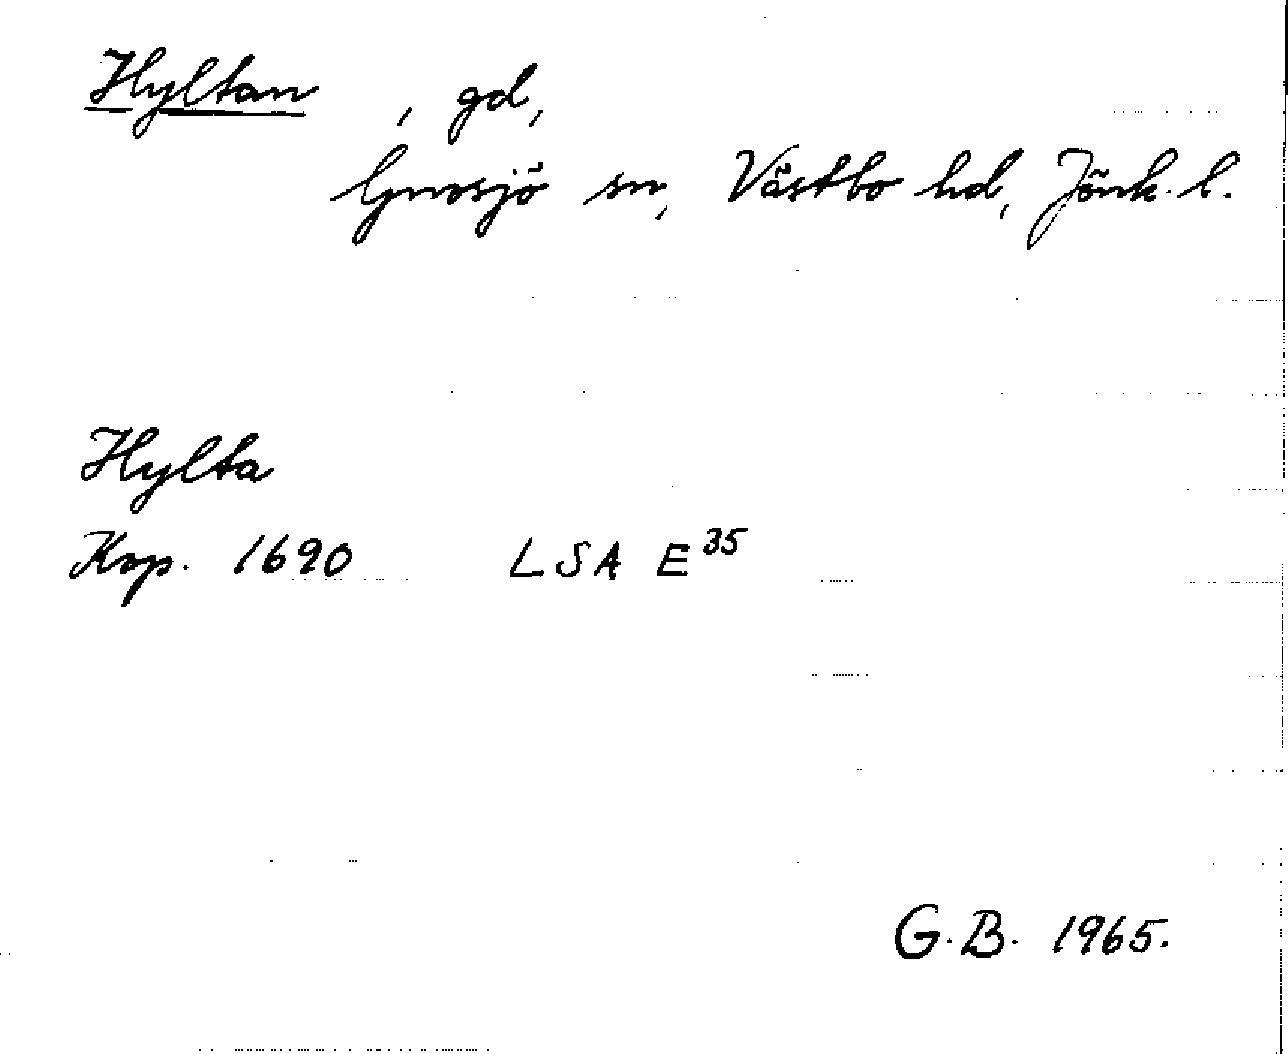 Hyltan, gd,
Gnosjö sn, Västbo hd, Jönk. l.
Hylta
Kop. 1690 LSA E³⁵
G.B. 1965.